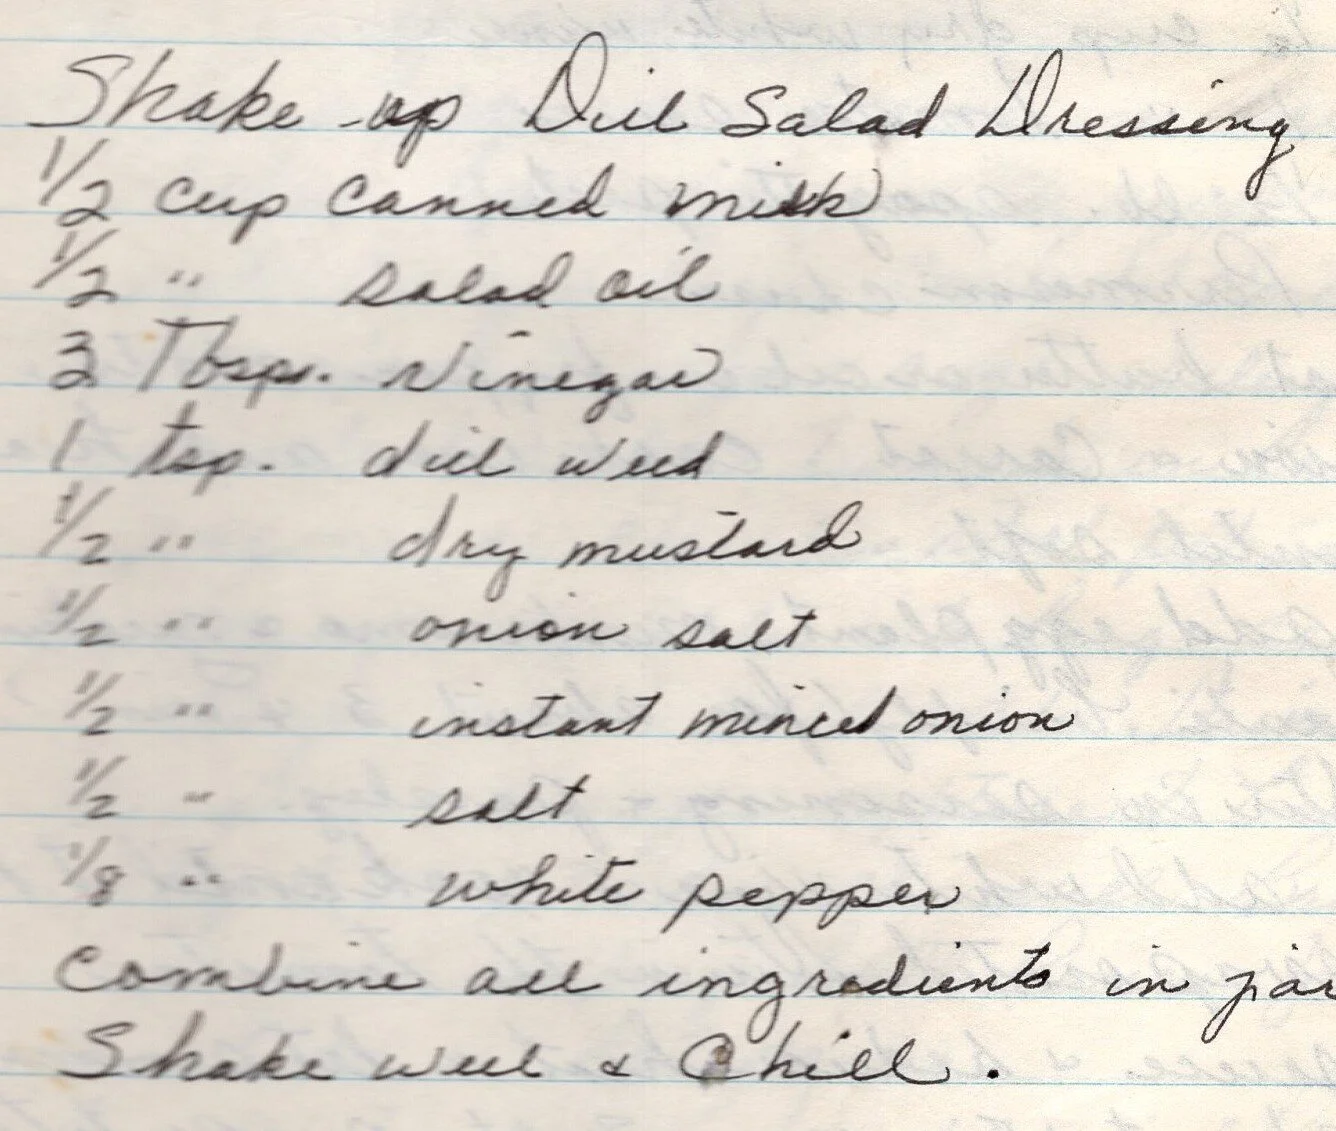 Shake-up Dill Salad Dressing
1/2 cup canned milk
1/2 " salad oil
3 Tbsps. Vinegar
1 tsp. dill weed
1/2 " dry mustard
1/2 " onion salt
1/2 " instant minced onion
1/2 " salt
1/8 " white pepper
Combine all ingredients in jar
Shake well & Chill.